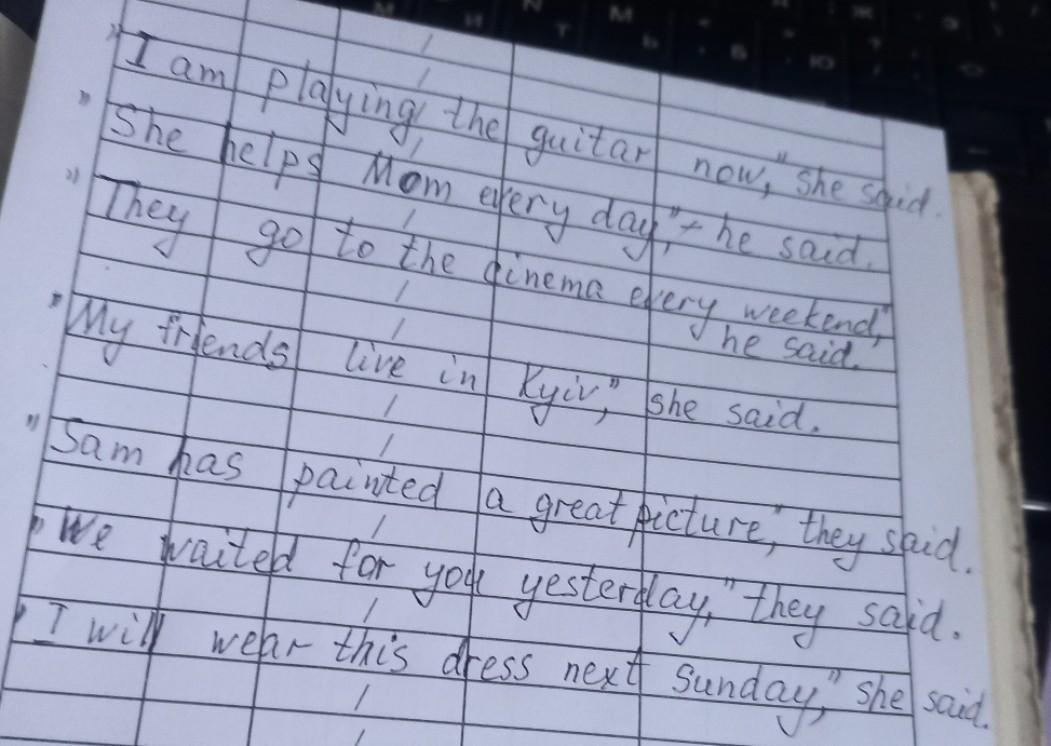 "I am playing the guitar now," she said.
"She helps Mom every day," he said.
"They go to the cinema every weekend,"
he said.
"My friends live in Kyiv," she said.
"Sam has painted a great picture," they said.
"We waited for you yesterday," they said.
"I will wear this dress next Sunday," she said.